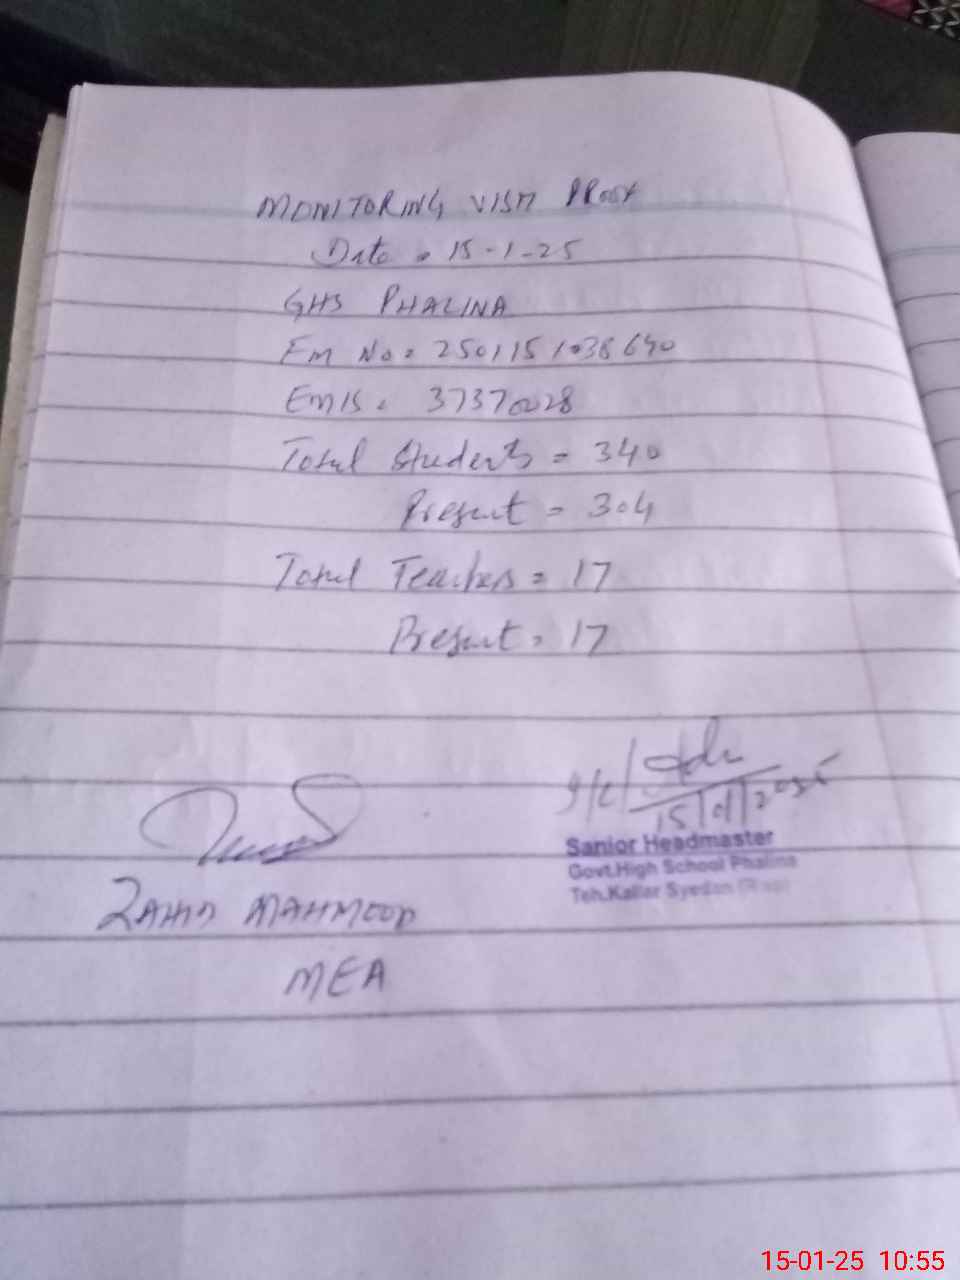 MONITORING VISIT PROOF
Date = 15-1-25
GHS PHALINA
Em No = 2501151038640
EMIS = 37370028
Total Students = 340
Present = 304
Total Teachers = 17
Present = 17
15/01/2025
Sanior Headmaster
Govt.High School Phalina
Teh.Kallar Syedan (Rwp)
ZAHID MAHMOOD
MEA
15-01-25 10:55